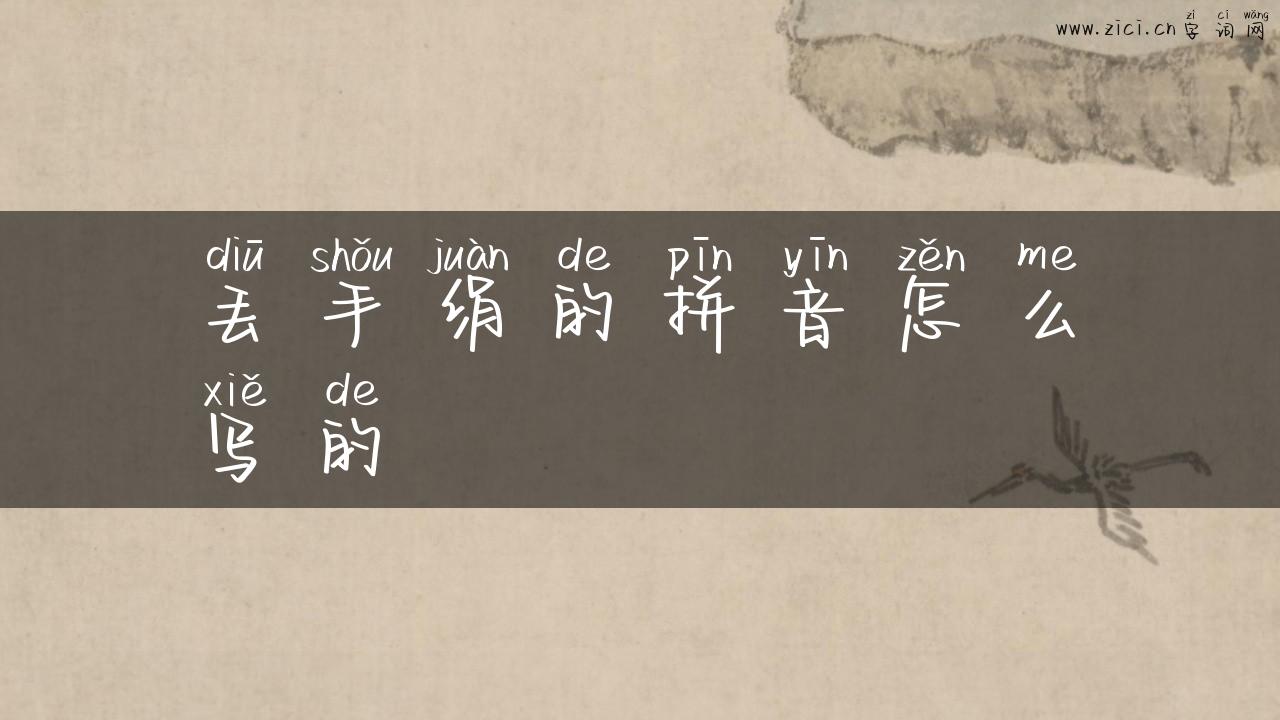 zì cí wǎng
www.zici.cn 字词网
diū shǒu juàn de pīn yīn zěn me
丢手绢的拼音怎么
xiě de
写的